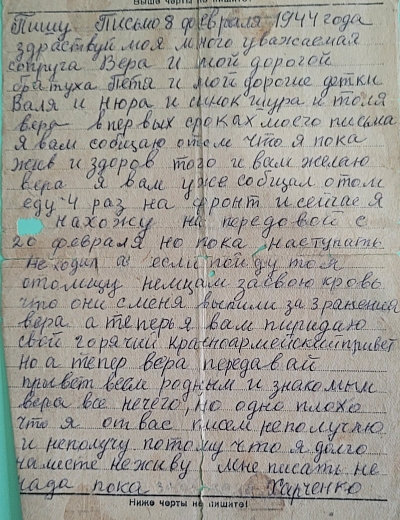 Выше черты не пишите!
Пишу Письмо 8 февраля 1944 года
здраствуй моя много уважаемая
сопруга Вера и мой дорогой
братуха Петя и мои дорогие детки
Валя и Нюра и синок шура и толя
вера в первых сроках моего письма
я вам собщаю отом что я пока
жив и здоров того и вам желаю
вера я вам уже собщал отом
еду 4 раз на фронт и сейчас я
нахожу на передовой с
20 февраля но пока наступать
не ходил а если пойду то я
отомщу немцам засвою кровь
что они сменя выпили за 3 ранения
вера а теперь я вам пиридаю
свой горячий красноармейский привет
но а тепер вера передавай
привет всем родным и знакомым
вера все нечего, но одно плохо
что я от вас писем неполучяю
и неполучу потому что я долго
наместе неживу мне писать не
нада пока Харченко
Ниже черты не пишите!